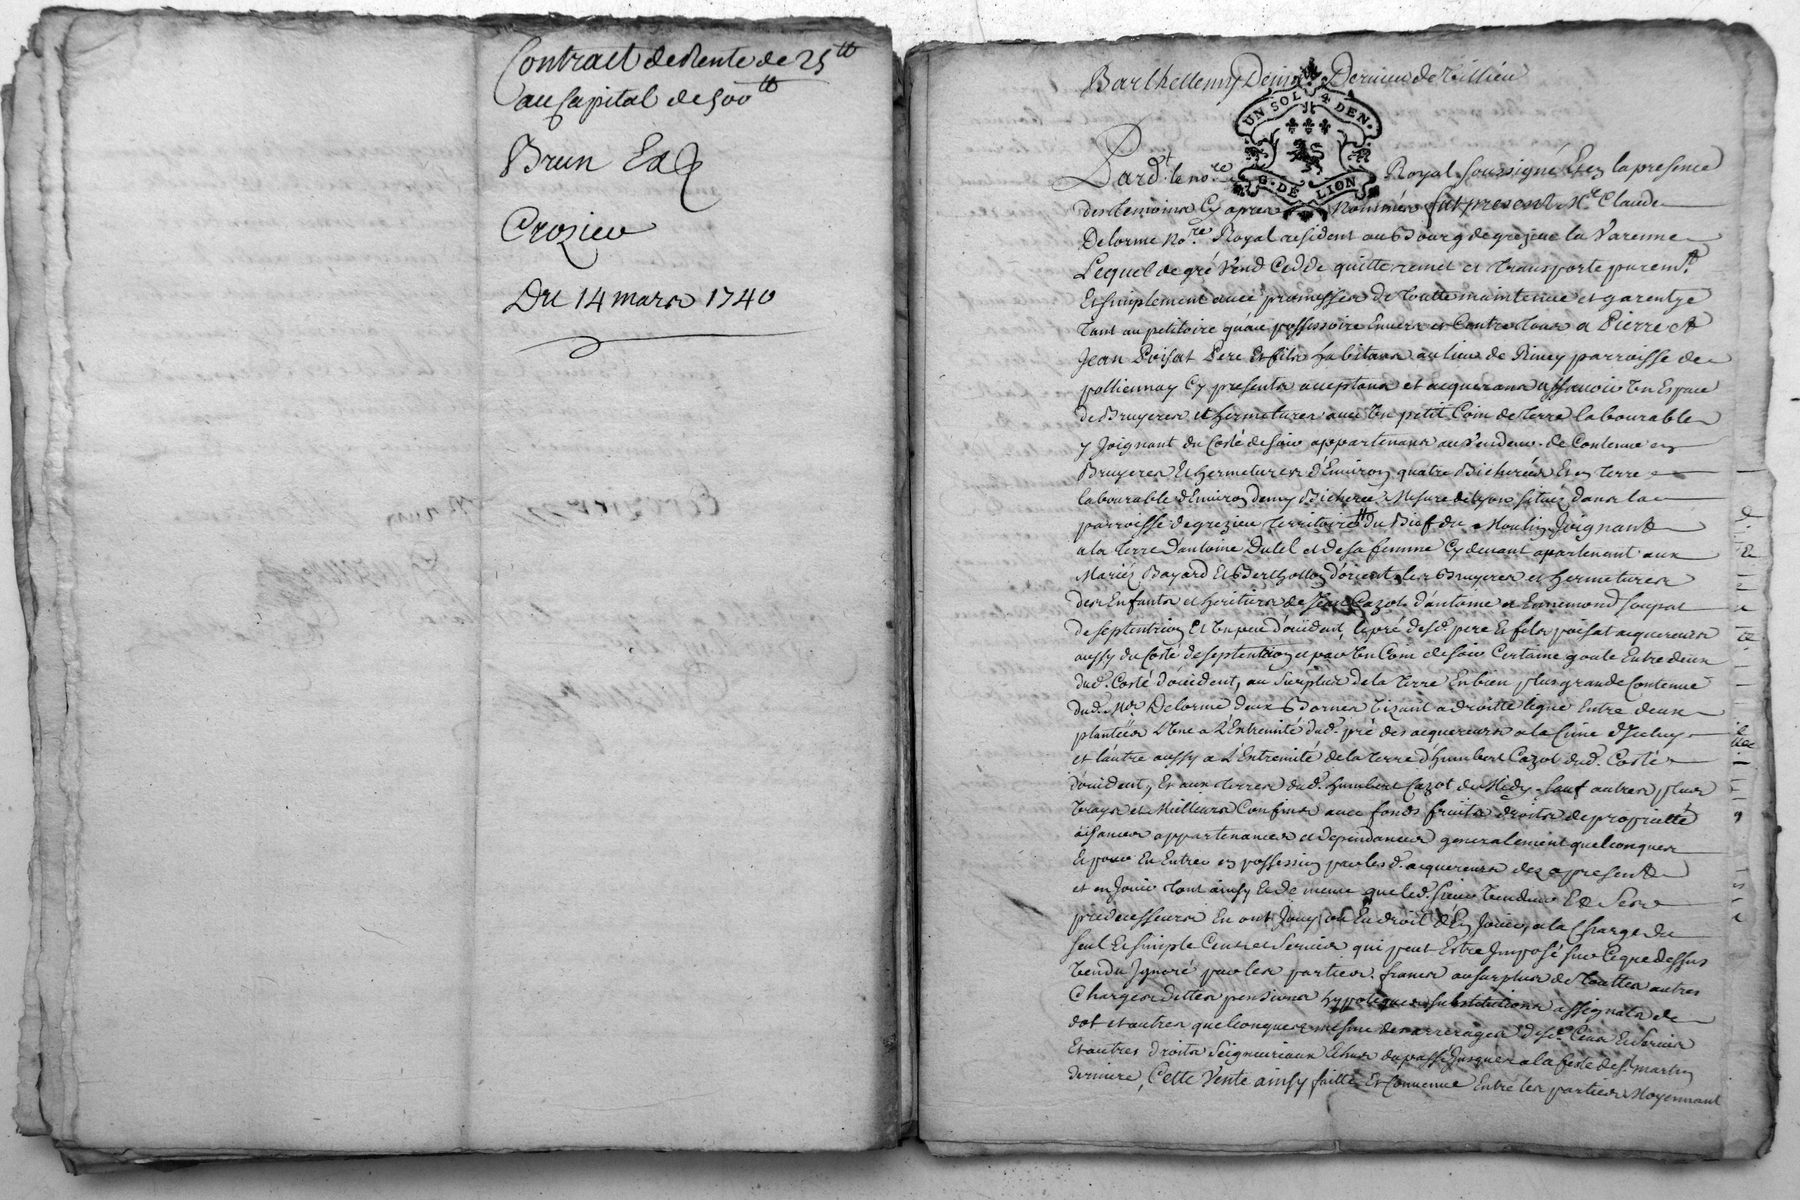 Contract de Rente de 25tt
au Capital de 500tt
Brun Et
Crozieu
Du 14 mars 1740
Barthellemy Dervieu de Villieu
UN SOL 4 DEN.
G. DE LION
Pard.t le no.re Royal soussigné Et en la presence
des temoins Cy apres nommés fut present M.e Claude
Delorme No.re Royal resident au Bourg de grezieu la Varenne
Lequel de gré Vend Cedde quitte remet et transporte purem.t
Et simplement avec promesses de toutte maintenue et garentye
tant au petitoire qu'au possessoire Envers et Contre tous a Pierre Et
Jean Poisat Pere Et fils habitans au lieu de Riney parroisse de
pollienay Cy presents aceptans et acquerans assavoir Un Espace
de Bruyeres et hermetures avec Un petit Coin de terre labourable
y Joignant du Costé de soir appartenans au Vendeur de Contenue en
Bruyeres Et hermetures d'Environ quatre Bicherées Et en terre
labourable d'Environ demy Bicherée Mesure de Lyon situés dans la
parroisse de grezieu territoire du Bief du Moulin Joignant
a la terre d'antoine Dutel et de sa femme Cy devant apartenant aux
Mariés Bayard Et Berthollon d'orient, les Bruyeres et hermetures
des Enfants et heritiers de Jean Cazot d'antoine et Ennemond Loupat
de septentrion Et Un peu d'occident, le pré desd. pere Et fils poisat acquereurs
aussy du Costé de septentrion et par Un Coin de soir Certaine goute Entre deux
dud. Costé d'occident, au surplus de la terre En bien plus grande Contenue
dud. M.e Delorme deux Bornes tizant a droitte ligne Entre deux
plantées L'Une a L'Extremité dud. pré des acquereurs a la Cime d'Iceluy
et l'autre aussy a L'Extremité de la terre d'humbert Cazot dud. Costé
d'occident, Et aux terres dud. humbert Cazot de Midy, sauf autres plus
Vrays et Meilleurs Confins avec fonds fruits droits de proprietté
aisances appartenances et dependances generalement quelconques
Et pour En Entrer en possession par les d. acquereurs dez a present
et en Jouir tout ainsy Et de meme que led. sieur Vendeur Et Ses
predecesseurs En ont Jouy ou Eu droit d'En Jouir, a la Charge du
seul Et simple Cens et Servis qui peut Estre Imposé sur Ce que dessus
Vendu Ignoré par les parties, francs au surplus de touttes autres
Charges dettes pensions hypoteques substitutions assignats de
dot et autres quelconques mesme des arrerages desd. Cens Et Servis
Et autres droits Seigneuriaux Echus du passé Jusques a la feste de S.t martin
derniere, Cette Vente ainsy faitte Et Convenue Entre les parties Moyennant